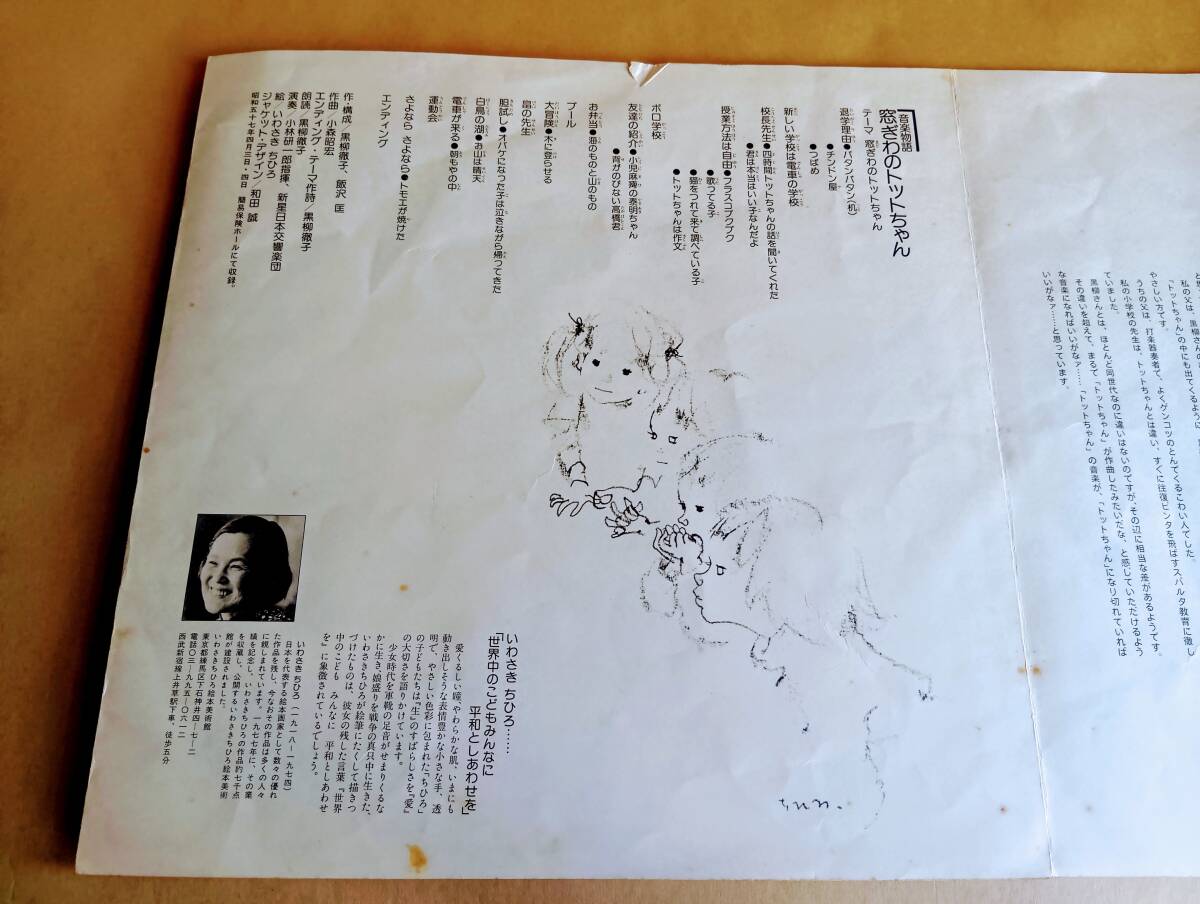 と思
私の父は、黒柳さんの
「トットちゃん」の中にも出てくるように
やさしい方です。
うちの父は、打楽器奏者で、よくゲンコツのとんでくるこわい人でした。
私の小学校の先生は、トットちゃんとは違い、すぐに往復ビンタを飛ばすスパルタ教育に徹し
ていました。
黒柳さんとは、ほとんど同世代なのに違いはないのですが、その辺に相当な差があるようです。
その違いを超えて、まるで「トットちゃん」が作曲したみたいだな、と感じていただけるよう
な音楽になればいいがなァ……「トットちゃん」の音楽が、「トットちゃん」になり切れていれば
いいがなァ……と思っています。
音楽物語
窓ぎわのトットちゃん
テーマ 窓ぎわのトットちゃん
退学理由●バタンバタン(机)
●チンドン屋
●つばめ
新しい学校は電車の学校
校長先生●四時間トットちゃんの話を聞いてくれた
●君は本当はいい子なんだよ
授業方法は自由●フラスコブクブク
●歌ってる子
●猫をつれて来て調べている子
●トットちゃんは作文
ボロ学校
友達の紹介●小児麻痺の泰明ちゃん
●背がのびない高橋君
お弁当●海のものと山のもの
プール
大冒険●木に登らせる
畠の先生
胆試し●オバケになった子は泣きながら帰ってきた
白鳥の湖●お山は晴天
電車が来る●朝もやの中
運動会
さよなら さよなら●トモエが焼けた
エンディング
作・構成/黒柳徹子、飯沢 匡
作曲/小森昭宏
エンディング・テーマ作詩/黒柳徹子
朗読/黒柳徹子
演奏/小林研一郎指揮、新星日本交響楽団
絵/いわさき ちひろ
ジャケット・デザイン/和田 誠
昭和五十七年四月三日・四日 簡易保険ホールにて収録。
ちひろ
いわさき ちひろ……
「世界中のこどもみんなに
平和としあわせを」
愛くるしい瞳、やわらかな肌、いまにも
動き出しそうな表情豊かな小さな手、透
明で、やさしい色彩に包まれた「ちひろ」
の子どもたちは『生』のすばらしさを『愛』
の大切さを語りかけています。
少女時代を軍靴の足音がせまりくるな
かに生き、娘盛りを戦争の真只中に生きた、
いわさきちひろが絵筆にたくして描きつ
づけたものは、彼女の残した言葉『世界
中のこども みんなに 平和としあわせ
を』に象徴されているでしょう。
いわさき ちひろ(一九一八-一九七四)
日本を代表する絵本画家として数々の優れ
た作品を残し、今なおその作品は多くの人々
に親しまれています。一九七七年に、その業
績を記念し、いわさきちひろの作品約七千点
を収蔵し、公開するいわさきちひろ絵本美術
館が建設されました。
いわさきちひろ絵本美術館
東京都練馬区下石神井四-七-二
電話〇三-九九五-〇六一二
西武新宿線上井草駅下車、徒歩五分